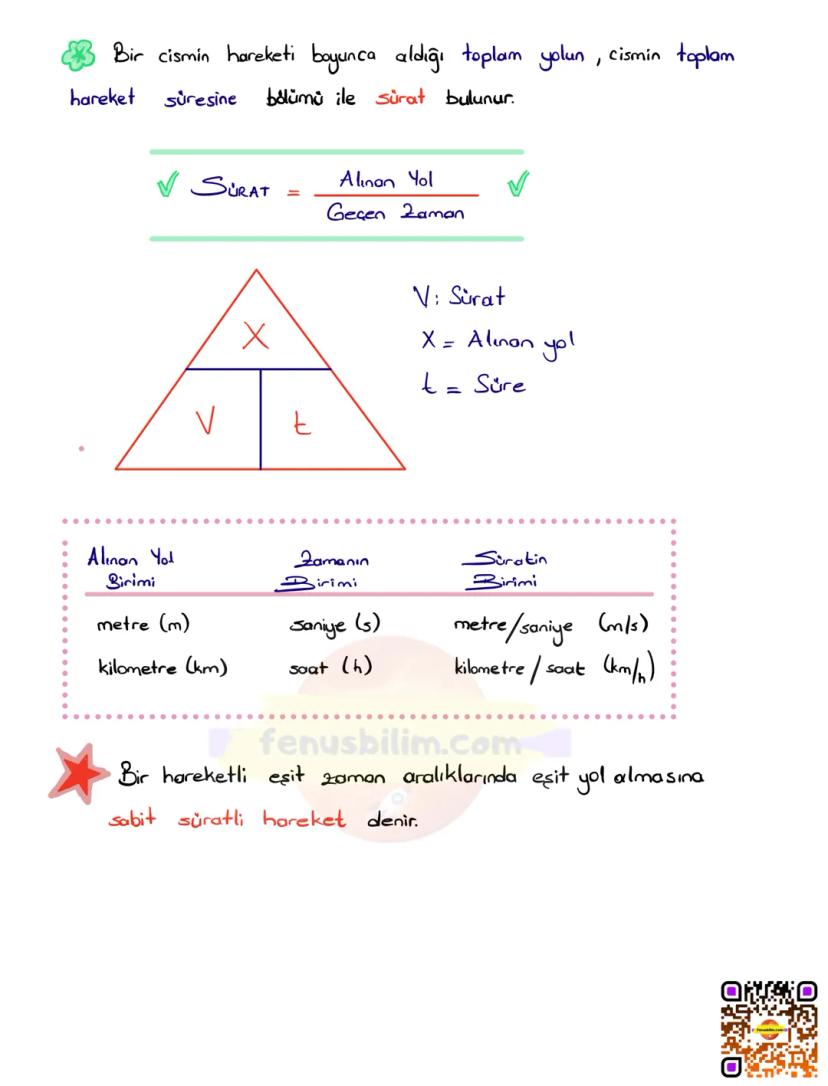 Bir cismin hareketi boyunca aldığı toplam yolun, cismin toplam
hareket süresine bölümü ile sürat bulunur.
SÜRAT = Alınan Yol
Geçen Zaman
X
V t
V: Sürat
X = Alınan yol
t = Süre
Alınan Yol Birimi
Zamanın Birimi
Süratin Birimi
metre (m) saniye (s) metre/saniye (m/s)
kilometre (km) saat (h) kilometre/saat (km/h)
fenusbilim.com
Bir hareketli eşit zaman aralıklarında eşit yol almasına
sabit süratli hareket denir.
fenusbilim.com